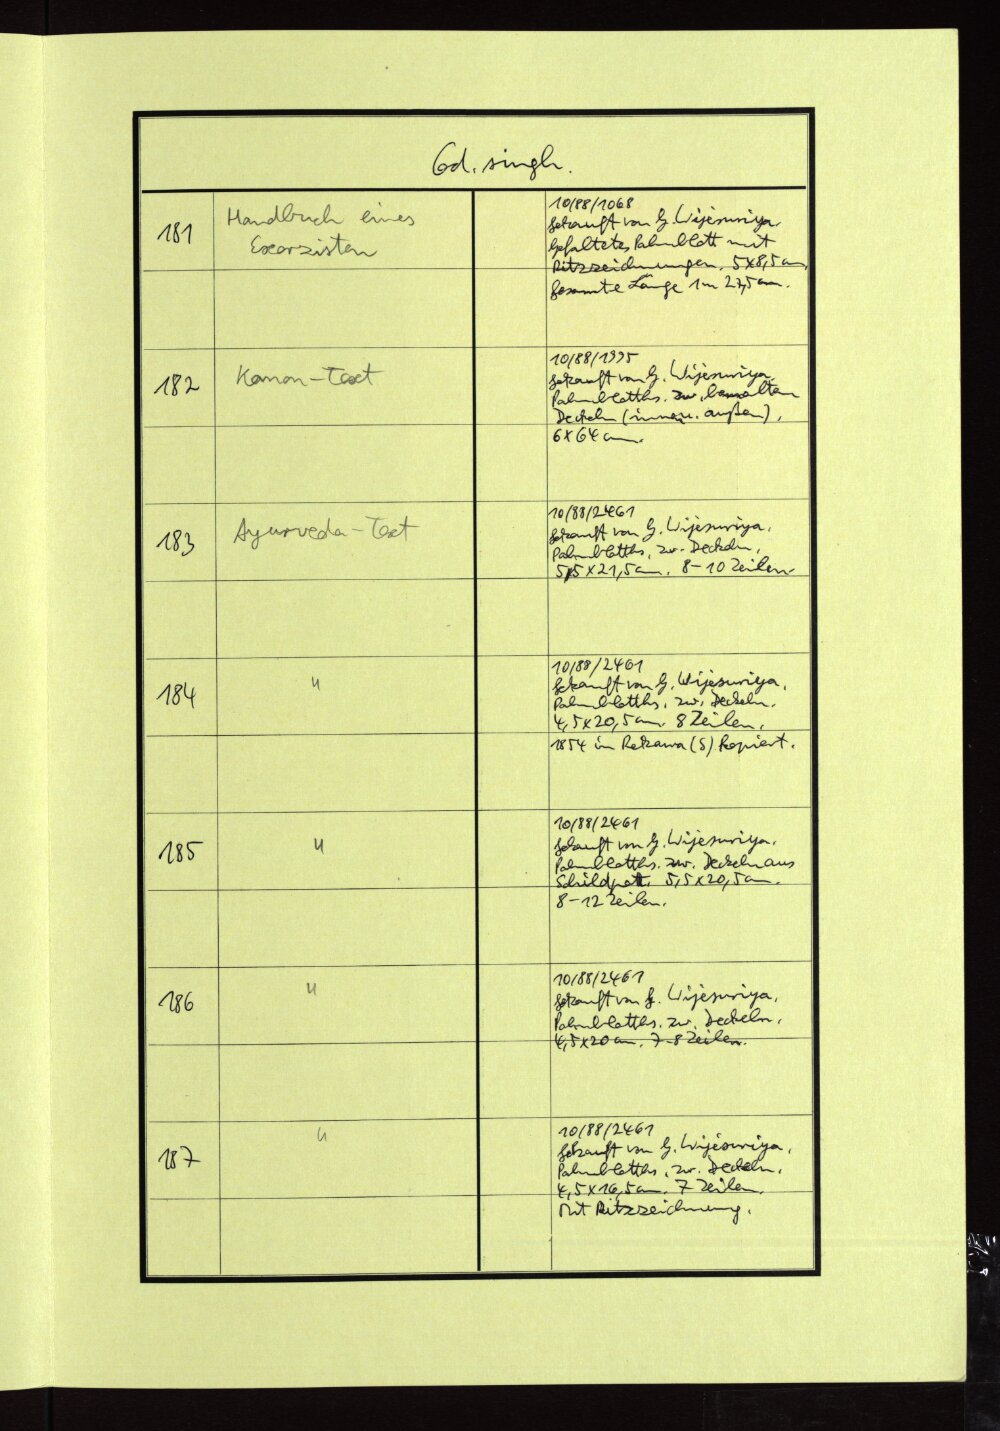 Cod. singh.
181
Handbuch eines
Exorzisten
10/88/1068
Gekauft von G. Wijesuriya.
Gefaltetes Palmblatt mit
Ritzzeichnungen. 5x8,5 cm
Gesamte Länge 1 m 27,5 cm.
182
Kanon-Text
10/88/1995
Gekauft von G. Wijesuriya.
Palmblatths. zw. bemalten
Deckeln (innen u. außen).
6x64 cm.
183
Ayurveda-Text
10/88/2461
Gekauft von G. Wijesuriya.
Palmblatths. zw. Deckeln.
5,5x21,5 cm. 8-10 Zeilen.
184
"
10/88/2461
Gekauft von G. Wijesuriya.
Palmblatths. zw. Deckeln.
4,5x20,5 cm. 8 Zeilen.
1854 in Rekawa (S) kopiert.
185
"
10/88/2461
Gekauft von G. Wijesuriya.
Palmblatths. zw. Deckeln aus
Schildpatt. 5,5x20,5 cm.
8-12 Zeilen.
186
"
10/88/2461
Gekauft von G. Wijesuriya.
Palmblatths. zw. Deckeln.
4,5x20 cm. 7-8 Zeilen.
187
"
10/88/2461
Gekauft von G. Wijesuriya.
Palmblatths. zw. Deckeln.
4,5x16,5 cm. 7 Zeilen.
Mit Ritzzeichnung.